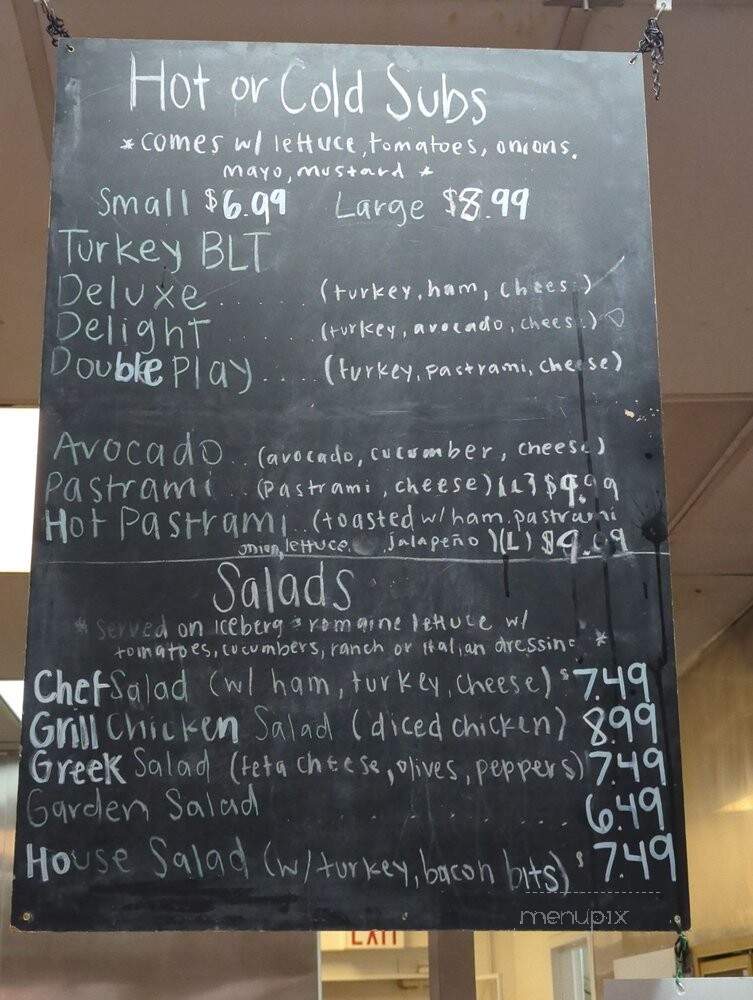 Hot or Cold Subs
*comes w/ lettuce, tomatoes, onions,
mayo, mustard *
Small $6.99 Large $8.99
Turkey BLT
Deluxe ...... (turkey, ham, chees )
Delight ...... (turkey, avocado, chees )
Double Play .... (turkey, pastrami, cheese)
Avocado .. (avocado, cucumber, cheese)
Pastrami .. (Pastrami, cheese) (L) $9.99
Hot Pastrami .. (toasted w/ ham, pastrami
onion, lettuce, jalapeño )(L) $9.09
Salads
* served on iceberg & romaine lettuce w/
tomatoes, cucumbers, ranch or italian dressing *
Chef Salad (w/ ham, turkey, cheese) $7.49
Grill Chicken Salad (diced chicken) 8.99
Greek Salad (feta cheese, olives, peppers) 7.49
Garden Salad .......... 6.49
House Salad (w/ turkey, bacon bits) $7.49
menupix
EXIT